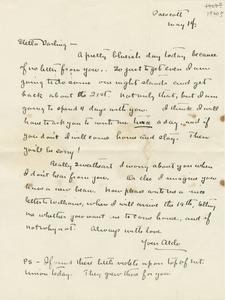 Prescott
May 14.
Stella Darling —
A pretty blueish day today because
of no letter from you. So just to get even I am
going to do some one night stands and get
back about the 21st. Not only that, but I am
going to spend 4 days with you. I think I will
have to ask you to write me twice a day – and if
you don't I will come home and stay. Then
you'll be sorry!
Really sweetheart I worry about you when
I don't hear from you. Or else I imagine you
have a new beau. Now please write me a nice
letter to Williams, when I will arrive the 19th, telling
me whether you want me to come home, and if
not why not. Always with love
Your Aldo
PS – I found these little violets upon top of Mt.
Union today. They grew there for you